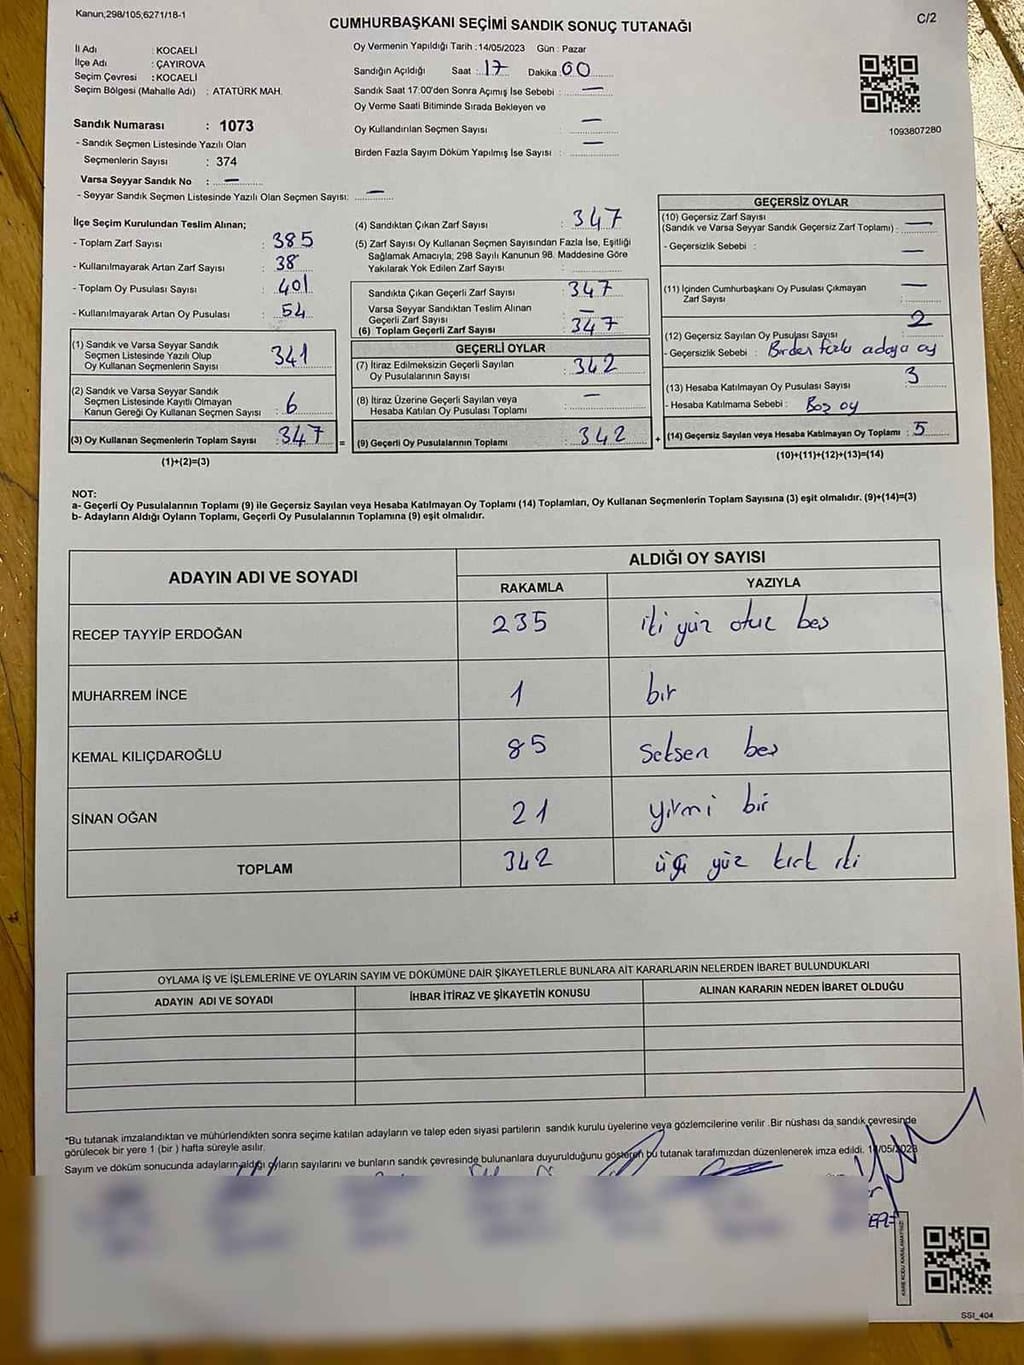 Kanun,298/105,6271/18-1
CUMHURBAŞKANI SEÇİMİ SANDIK SONUÇ TUTANAĞI
C/2
İl Adı : KOCAELİ
İlçe Adı : ÇAYIROVA
Seçim Çevresi : KOCAELİ
Seçim Bölgesi (Mahalle Adı) : ATATÜRK MAH.
Oy Vermenin Yapıldığı Tarih : 14/05/2023 Gün : Pazar
Sandığın Açıldığı Saat : 17 Dakika : 00
Sandık Saat 17:00'den Sonra Açımış İse Sebebi : —
Oy Verme Saati Bitiminde Sırada Bekleyen ve
Oy Kullandırılan Seçmen Sayısı : —
Birden Fazla Sayım Döküm Yapılmış İse Sayısı : —
1093807280
Sandık Numarası : 1073
- Sandık Seçmen Listesinde Yazılı Olan
Seçmenlerin Sayısı : 374
Varsa Seyyar Sandık No : —
- Seyyar Sandık Seçmen Listesinde Yazılı Olan Seçmen Sayısı: —
İlçe Seçim Kurulundan Teslim Alınan;
- Toplam Zarf Sayısı : 385
- Kullanılmayarak Artan Zarf Sayısı : 38
- Toplam Oy Pusulası Sayısı : 401
- Kullanılmayarak Artan Oy Pusulası : 54
(1) Sandık ve Varsa Seyyar Sandık
Seçmen Listesinde Yazılı Olup
Oy Kullanan Seçmenlerin Sayısı : 341
(2) Sandık ve Varsa Seyyar Sandık
Seçmen Listesinde Kayıtlı Olmayan
Kanun Gereği Oy Kullanan Seçmen Sayısı : 6
(3) Oy Kullanan Seçmenlerin Toplam Sayısı : 347 =
(1)+(2)=(3)
(4) Sandıktan Çıkan Zarf Sayısı : 347
(5) Zarf Sayısı Oy Kullanan Seçmen Sayısından Fazla İse, Eşitliği
Sağlamak Amacıyla, 298 Sayılı Kanunun 98. Maddesine Göre
Yakılarak Yok Edilen Zarf Sayısı :
Sandıkta Çıkan Geçerli Zarf Sayısı : 347
Varsa Seyyar Sandıktan Teslim Alınan
Geçerli Zarf Sayısı : —
(6) Toplam Geçerli Zarf Sayısı : 347
GEÇERLİ OYLAR
(7) İtiraz Edilmeksizin Geçerli Sayılan
Oy Pusulalarının Sayısı : 342
(8) İtiraz Üzerine Geçerli Sayılan veya
Hesaba Katılan Oy Pusulası Toplamı : —
(9) Geçerli Oy Pusulalarının Toplamı : 342 +
GEÇERSİZ OYLAR
(10) Geçersiz Zarf Sayısı
(Sandık ve Varsa Seyyar Sandık Geçersiz Zarf Toplamı) : —
- Geçersizlik Sebebi : —
(11) İçinden Cumhurbaşkanı Oy Pusulası Çıkmayan
Zarf Sayısı : —
(12) Geçersiz Sayılan Oy Pusulası Sayısı : 2
- Geçersizlik Sebebi : Birden fazla adaya oy
(13) Hesaba Katılmayan Oy Pusulası Sayısı : 3
- Hesaba Katılmama Sebebi : Boş oy
(14) Geçersiz Sayılan veya Hesaba Katılmayan Oy Toplamı : 5
(10)+(11)+(12)+(13)=(14)
NOT:
a- Geçerli Oy Pusulalarının Toplamı (9) ile Geçersiz Sayılan veya Hesaba Katılmayan Oy Toplamı (14) Toplamları, Oy Kullanan Seçmenlerin Toplam Sayısına (3) eşit olmalıdır. (9)+(14)=(3)
b- Adayların Aldığı Oyların Toplamı, Geçerli Oy Pusulalarının Toplamına (9) eşit olmalıdır.
ADAYIN ADI VE SOYADI
ALDIĞI OY SAYISI
RAKAMLA YAZIYLA
RECEP TAYYİP ERDOĞAN 235 iki yüz otuz beş
MUHARREM İNCE 1 bir
KEMAL KILIÇDAROĞLU 85 Seksen beş
SİNAN OĞAN 21 yirmi bir
TOPLAM 342 üç yüz kırk iki
OYLAMA İŞ VE İŞLEMLERİNE VE OYLARIN SAYIM VE DÖKÜMÜNE DAİR ŞİKAYETLERLE BUNLARA AİT KARARLARIN NELERDEN İBARET BULUNDUKLARI
ADAYIN ADI VE SOYADI İHBAR İTİRAZ VE ŞİKAYETİN KONUSU ALINAN KARARIN NEDEN İBARET OLDUĞU
*Bu tutanak imzalandıktan ve mühürlendikten sonra seçime katılan adayların ve talep eden siyasi partilerin sandık kurulu üyelerine veya gözlemcilerine verilir .Bir nüshası da sandık çevresinde
görülecek bir yere 1 (bir ) hafta süreyle asılır.
Sayım ve döküm sonucunda adayların aldığı oyların sayılarını ve bunların sandık çevresinde bulunanlara duyurulduğunu gösteren bu tutanak tarafımızdan düzenlenerek imza edildi.
KARE KODU KARALAMAYINIZ!
SSI_404